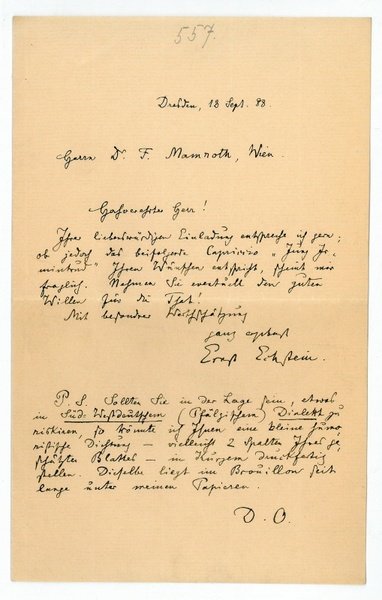 557.
Dresden, 18 Sept. 88.
Herrn Dr F. Mamroth, Wien.
Hochverehrter Herr!
Ihrer liebenswürdigen Einladung entspreche ich gern;
ob jedoch das beifolgende Capriccio „Jung
Ihren Wünschen entspricht, scheint mir
fraglich. Nehmen Sie eventuell den guten
Willen für die That!
Mit besondrer Werthschätzung
ganz ergebenst
Ernst Eckstein.
P. S. Sollten Sie in der Lage sein, etwas
in Süd-Westdeutschem (Pfälzischem) Dialekt zu
riskiren, so könnte ich Ihnen eine kleine humo-
ristische Dichtung – vielleicht 2 Spalten Ihres ge-
schätzten Blattes – in Kurzem druckfertig
stellen. Dieselbe liegt im Brouillon seit
lange unter meinen Papieren.
D. O.